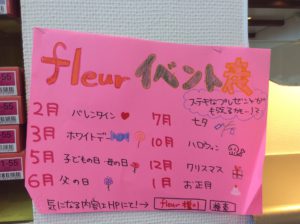 fleur イベント表
ステキなプレゼントが
も
2月 バレンタイン
7月 七夕
3月 ホワイトデー
10月 ハロウィン
5月 子どもの日 母の日
12月 クリスマス
6月 父の日
1月 お正月
気になる内容はHPにて!→ fleur 検索
-55
-55
-55
1-55